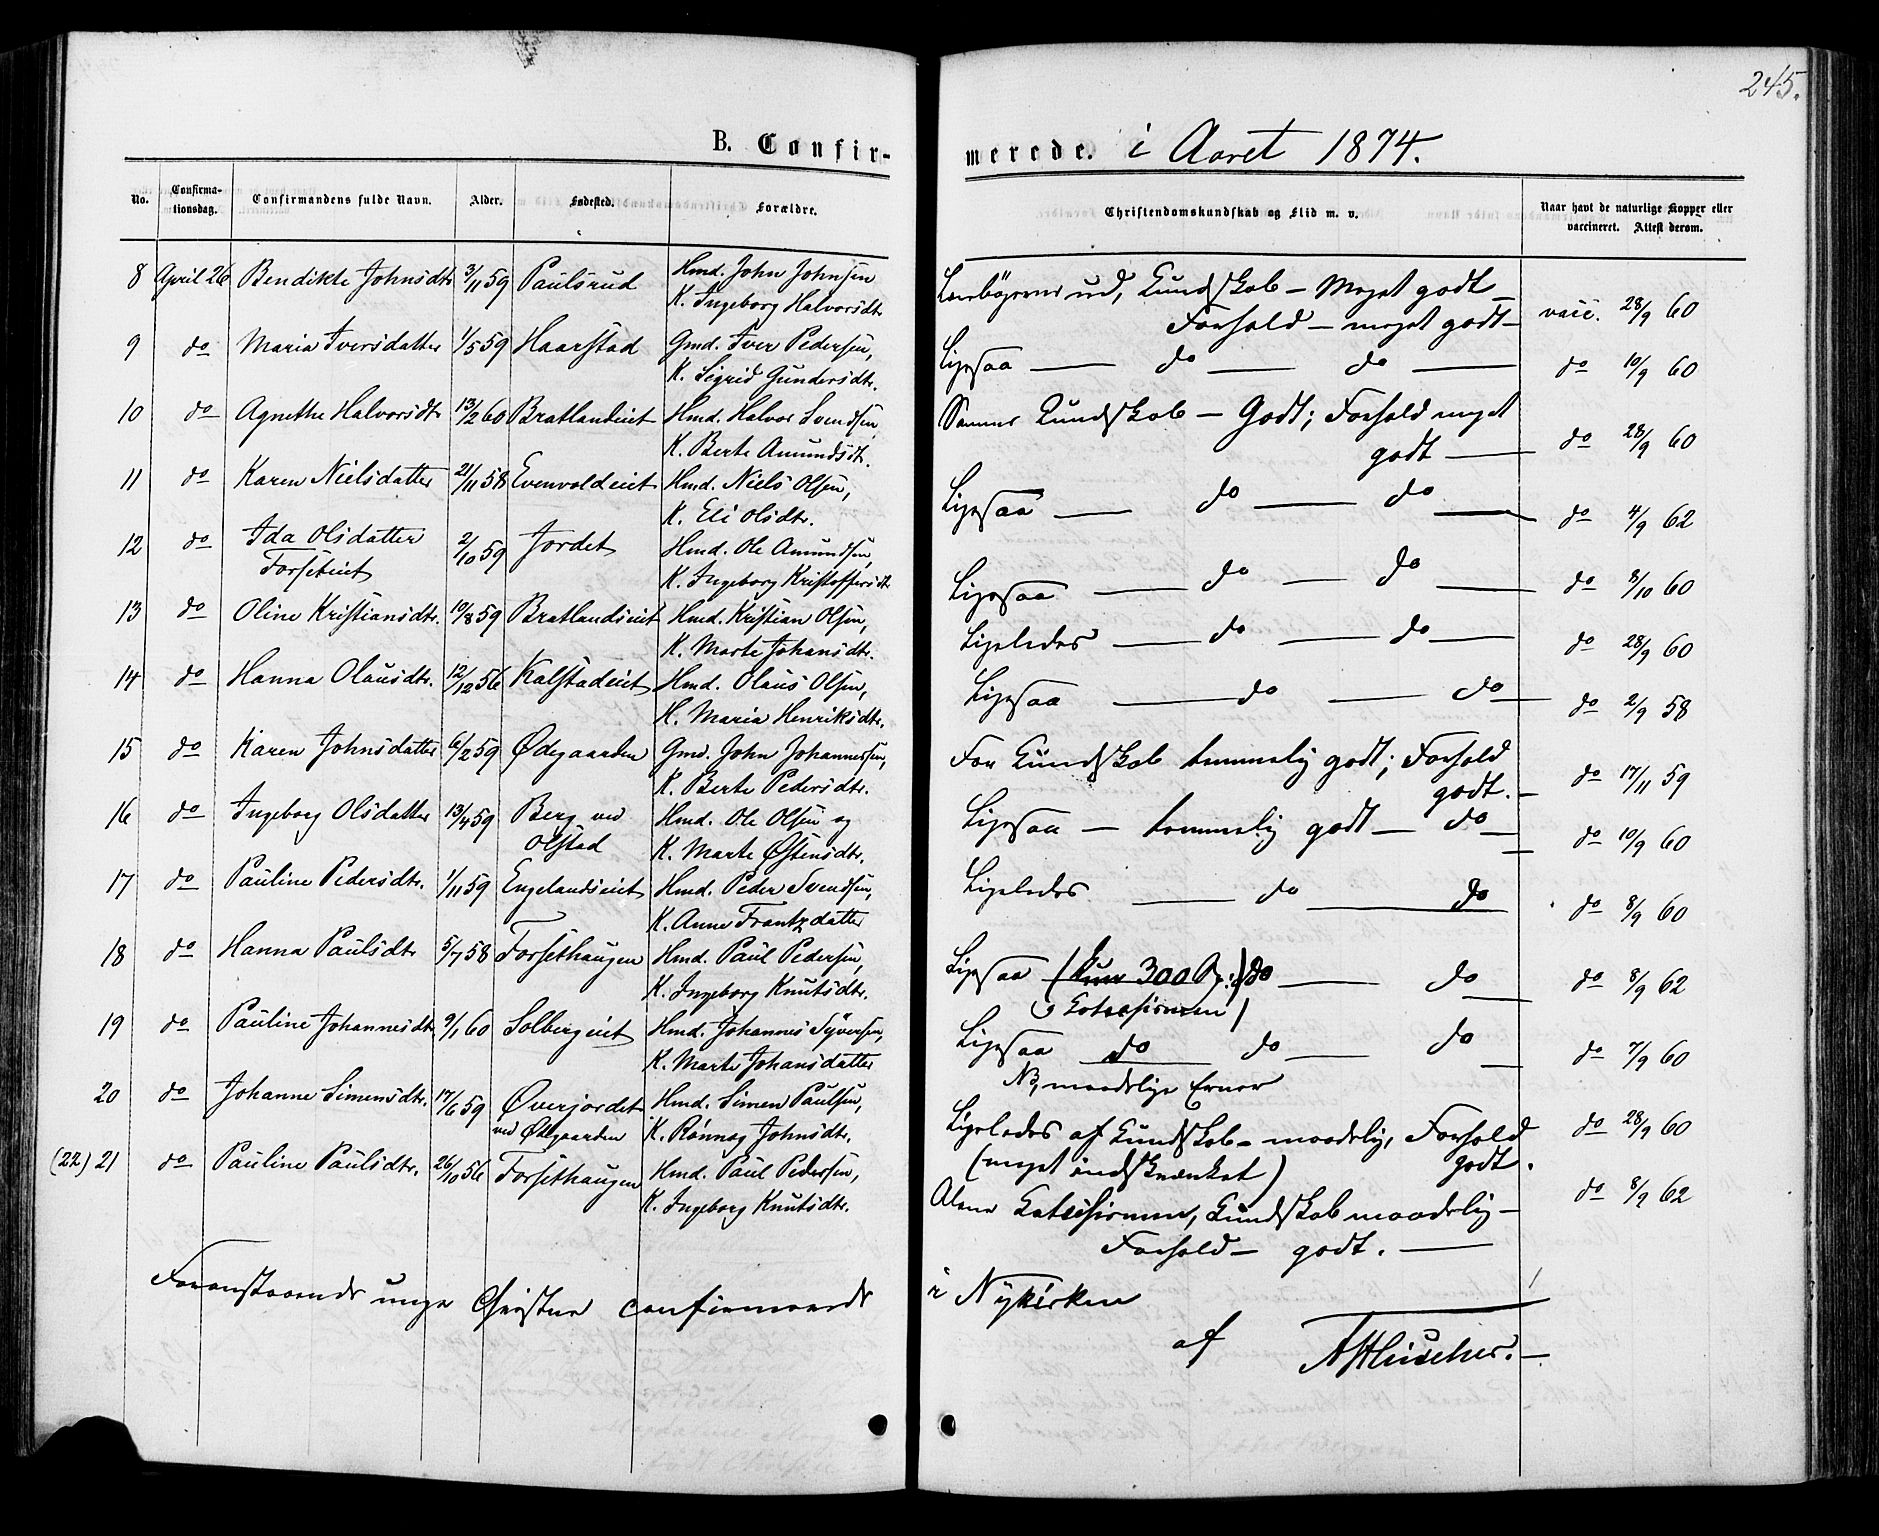 245.
B. Confir-
merede. i Aaret 1874.
No.
Confirma-
tionsdag.
Confirmandens fulde Navn.
Alder.
Fødested.
Forældre.
Christendomskundskab og Flid m. v.
Naar havt de naturlige Kopper eller
vaccineret. Attest derom.
8 April 26 Bendikte Johnsdtr 3/11 59 Paulsrud Hmd. John Johnsen
K. Ingeborg Halvorsdtr
Lærebøgerne ud, Kundskab - Meget godt -
Forhold - meget godt -
vacc. 28/9 60
9 do Maria Iversdatter 1/5 59 Haarstad Gmd. Iver Pedersen,
K. Sigrid Gundersdtr.
Ligesaa — do — do — do 10/9 60
10 do Agnethe Halvorsdtr 13/2 60 Bratlandseiet Hmd. Halvor Svendsen,
K. Berte Amundsdtr.
Samme Kundskab - Godt; Forhold meget
godt — do 28/9 60
11 do Karen Nielsdatter 21/11 58 Evenvoldeiet Hmd. Niels Olsen,
K. Eli Olsdtr.
Ligesaa — do — do — do 4/9 62
12 do Ida Olsdatter 2/10 59 Jordet Hmd. Ole Amundsen,
Forseteiet K. Ingeborg Kristoffersdtr
Ligesaa — do — do — do 8/10 60
13 do Oline Kristiansdtr. 10/8 59 Bratlandseiet Hmd. Kristian Olsen,
K. Marte Johansdtr.
Ligeledes — do — do — do 28/9 60
14 do Hanna Olausdtr. 12/12 56 Kalstadeiet Hmd. Olaus Olsen,
K. Maria Henriksdtr.
Ligesaa — do — do — do 2/9 58
15 do Karen Johnsdatter 6/2 59 Ødegaarden Gmd. John Johannessen,
K. Berte Pedersdtr.
For Kundskab temmelig godt; Forhold
godt. — do 17/11 59
16 do Ingeborg Olsdatter 13/4 59 Berg ved Hmd. Ole Olsen og
Olstad K. Marte Østensdtr.
Ligesaa — temmelig godt — do — do 10/9 60
17 do Pauline Pedersdtr. 1/11 59 Engelandseiet Hmd. Peder Svendsen,
K. Anne Frantzdatter
Ligeledes — do — do do 8/9 60
18 do Hanna Paulsdtr 5/7 58 Forsethaugen Hmd. Paul Pedersen,
K. Ingeborg Knutsdtr.
Ligesaa (kun 300 Sp.:) do — do — do 8/9 62
(Katechismen)
19 do Pauline Johannesdtr 9/1 60 Solbergeiet Hmd. Johannes Syversen,
K. Marte Johansdatter
Ligesaa do do — do — do 7/9 60
NB, maadelige Evner
20 do Johanne Simensdtr. 17/6 59 Øverjordet Hmd. Simen Paulsen,
ved Ødegaarden K. Rønnog Johnsdtr.
Ligeledes af Kundskab - maadelig, Forhold
(meget indskrænket) godt.
do 28/9 60
(22) 21 do Pauline Paulsdtr. 26/10 56 Forsethaugen Hmd. Paul Pedersen,
K. Ingeborg Knutsdtr.
Alene Katechismen, Kundskab maadelig -
Forhold - godt. —
do 8/9 62
Foranstaaende unge Christne confirmerede
i Nykirken
af